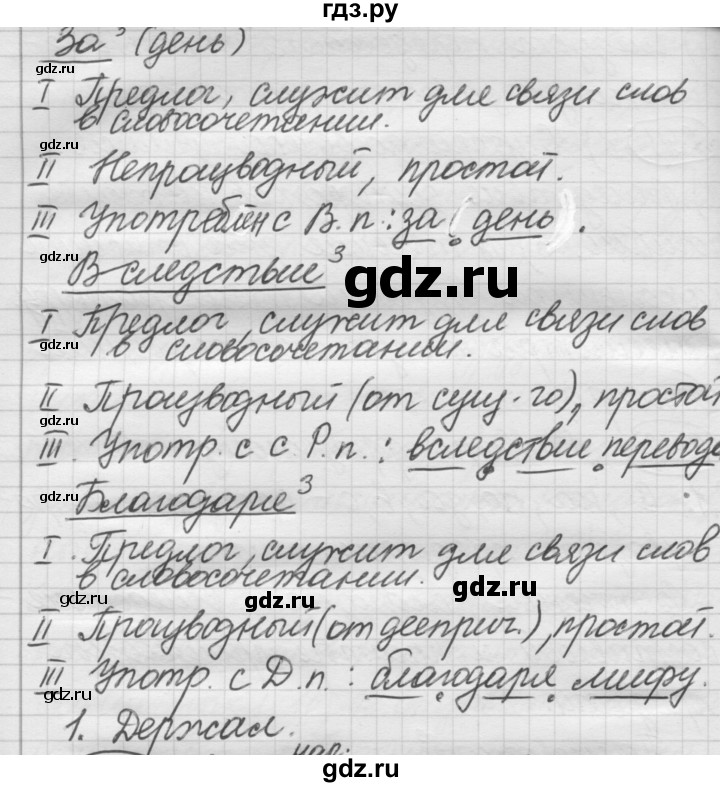 гдз.ру
За³ (день)
gdz.ru
I Предлог, служит для связи слов
в словосочетании.
gdz.ru
II Непроизводный, простой.
gdz.ru
III Употреблён с В.п.: за (день).
gdz.ru
Вследствие³
gdz.ru
gdz.ru
I Предлог, служит для связи слов
gdz.ru
в словосочетании.
II Производный (от сущ-го), простой
gdz.ru
III. Употр. с с Р.п.: вследствие перевода
gdz.ru
Благодаря³
gdz.ru
I. Предлог, служит для связи слов
в словосочетании.
gdz.ru
gdz.ru
gdz.ru
II Производный (от дееприч.), простой.
gdz.ru
III Употр. с Д.п.: благодаря мифу.
gdz.ru
1. Держал.
gdz.ru
gdz.ru